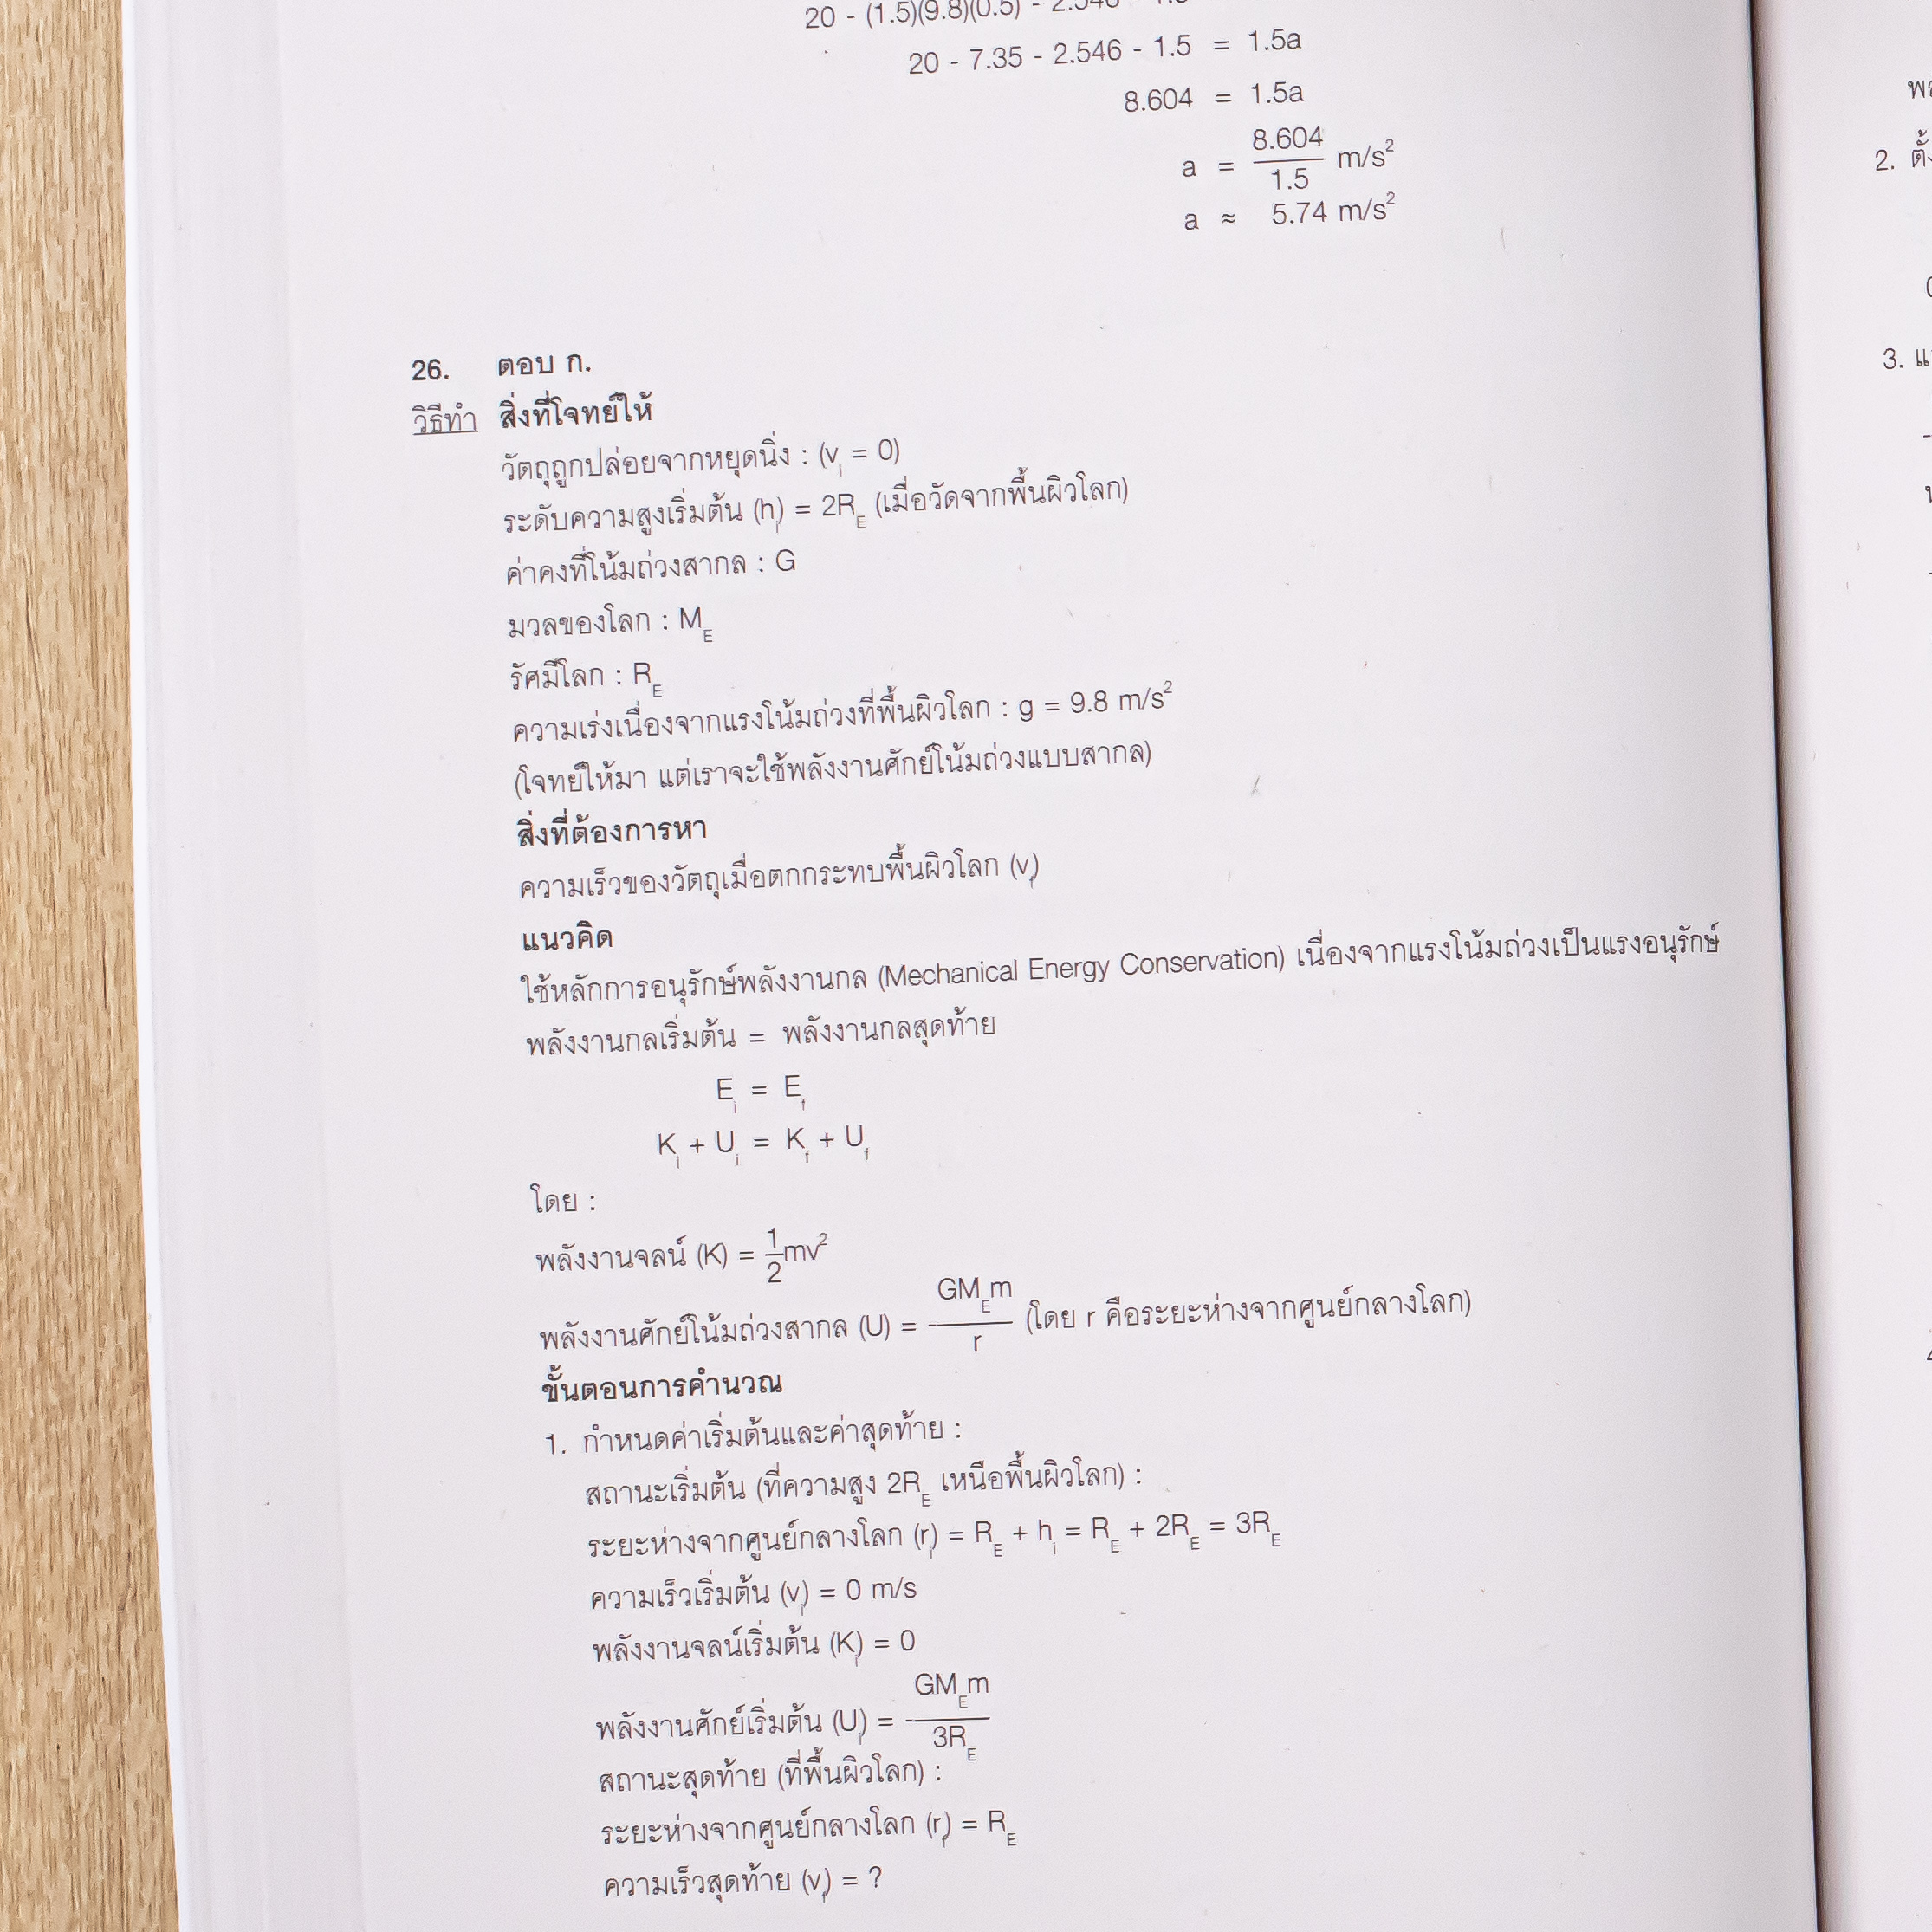 20 - (1.5)(9.8)(0.5) - 2.546
20 - 7.35 - 2.546 - 1.5 = 1.5a
8.604 = 1.5a
a = 8.604/1.5 m/s²
a ≈ 5.74 m/s²
26. ตอบ ก.
วิธีทำ สิ่งที่โจทย์ให้
วัตถุถูกปล่อยจากหยุดนิ่ง : (vᵢ = 0)
ระดับความสูงเริ่มต้น (hᵢ) = 2R_E (เมื่อวัดจากพื้นผิวโลก)
ค่าคงที่โน้มถ่วงสากล : G
มวลของโลก : M_E
รัศมีโลก : R_E
ความเร่งเนื่องจากแรงโน้มถ่วงที่พื้นผิวโลก : g = 9.8 m/s²
(โจทย์ให้มา แต่เราจะใช้พลังงานศักย์โน้มถ่วงแบบสากล)
สิ่งที่ต้องการหา
ความเร็วของวัตถุเมื่อตกกระทบพื้นผิวโลก (v_f)
แนวคิด
ใช้หลักการอนุรักษ์พลังงานกล (Mechanical Energy Conservation) เนื่องจากแรงโน้มถ่วงเป็นแรงอนุรักษ์
พลังงานกลเริ่มต้น = พลังงานกลสุดท้าย
Eᵢ = E_f
Kᵢ + Uᵢ = K_f + U_f
โดย :
พลังงานจลน์ (K) = 1/2 mv²
พลังงานศักย์โน้มถ่วงสากล (U) = -GM_Em/r (โดย r คือระยะห่างจากศูนย์กลางโลก)
ขั้นตอนการคำนวณ
1. กำหนดค่าเริ่มต้นและค่าสุดท้าย :
สถานะเริ่มต้น (ที่ความสูง 2R_E เหนือพื้นผิวโลก) :
ระยะห่างจากศูนย์กลางโลก (rᵢ) = R_E + hᵢ = R_E + 2R_E = 3R_E
ความเร็วเริ่มต้น (vᵢ) = 0 m/s
พลังงานจลน์เริ่มต้น (Kᵢ) = 0
พลังงานศักย์เริ่มต้น (Uᵢ) = -GM_Em/3R_E
สถานะสุดท้าย (ที่พื้นผิวโลก) :
ระยะห่างจากศูนย์กลางโลก (r_f) = R_E
ความเร็วสุดท้าย (v_f) = ?
2.
3.